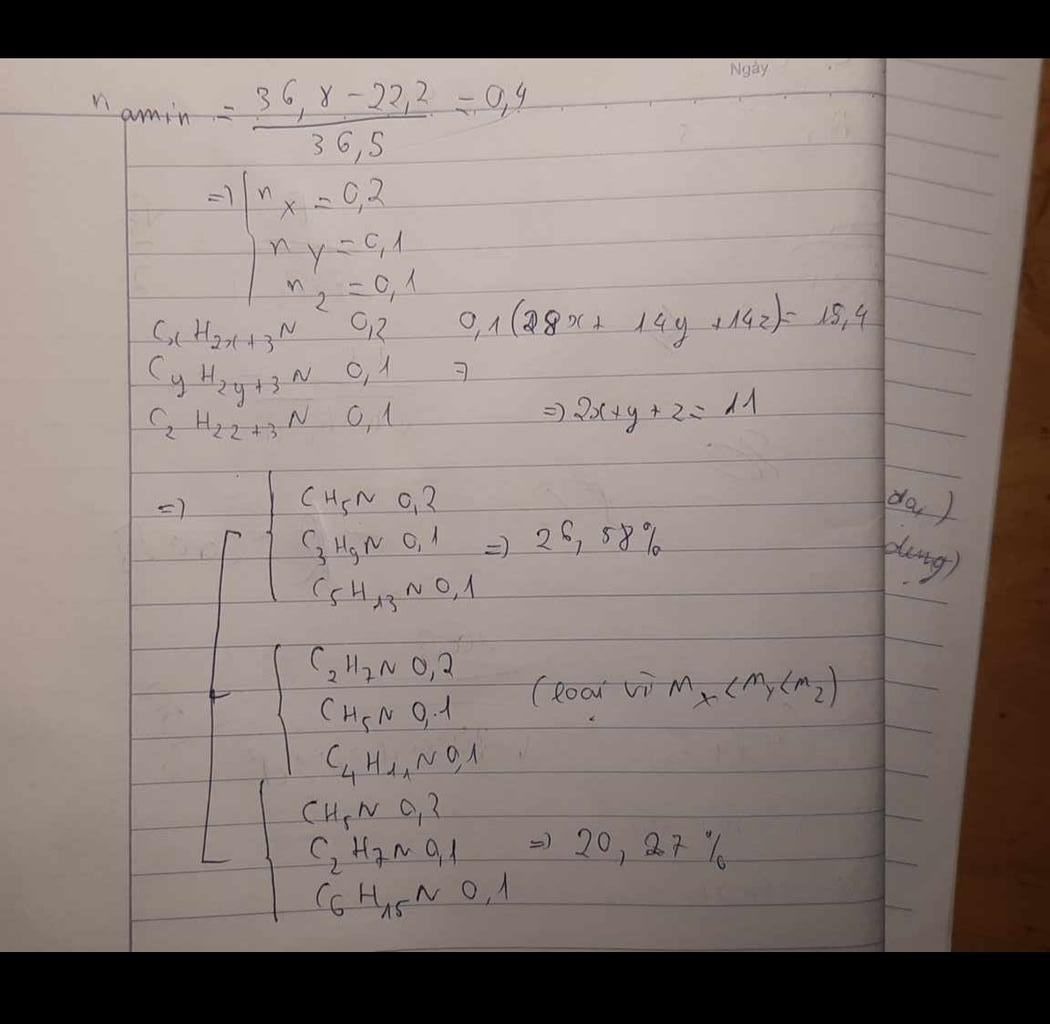 Ngày
n amin = (36,8 - 22,2)/36,5 = 0,4
=> n X = 0,2
n Y = 0,1
n Z = 0,1
CxH2x+3N 0,2 0,1(28x + 14y + 14z) = 15,4
CyH2y+3N 0,1 =
CzH2z+3N 0,1 => 2x+y+z = 11
=> CH5N 0,2
C3H9N 0,1 => 26,58%
C5H13N 0,1
C2H7N 0,2
CH5N 0,1 (loại vì Mx < My < Mz)
C4H11N 0,1
CH5N 0,2
C2H7N 0,1 => 20,27%
C6H15N 0,1